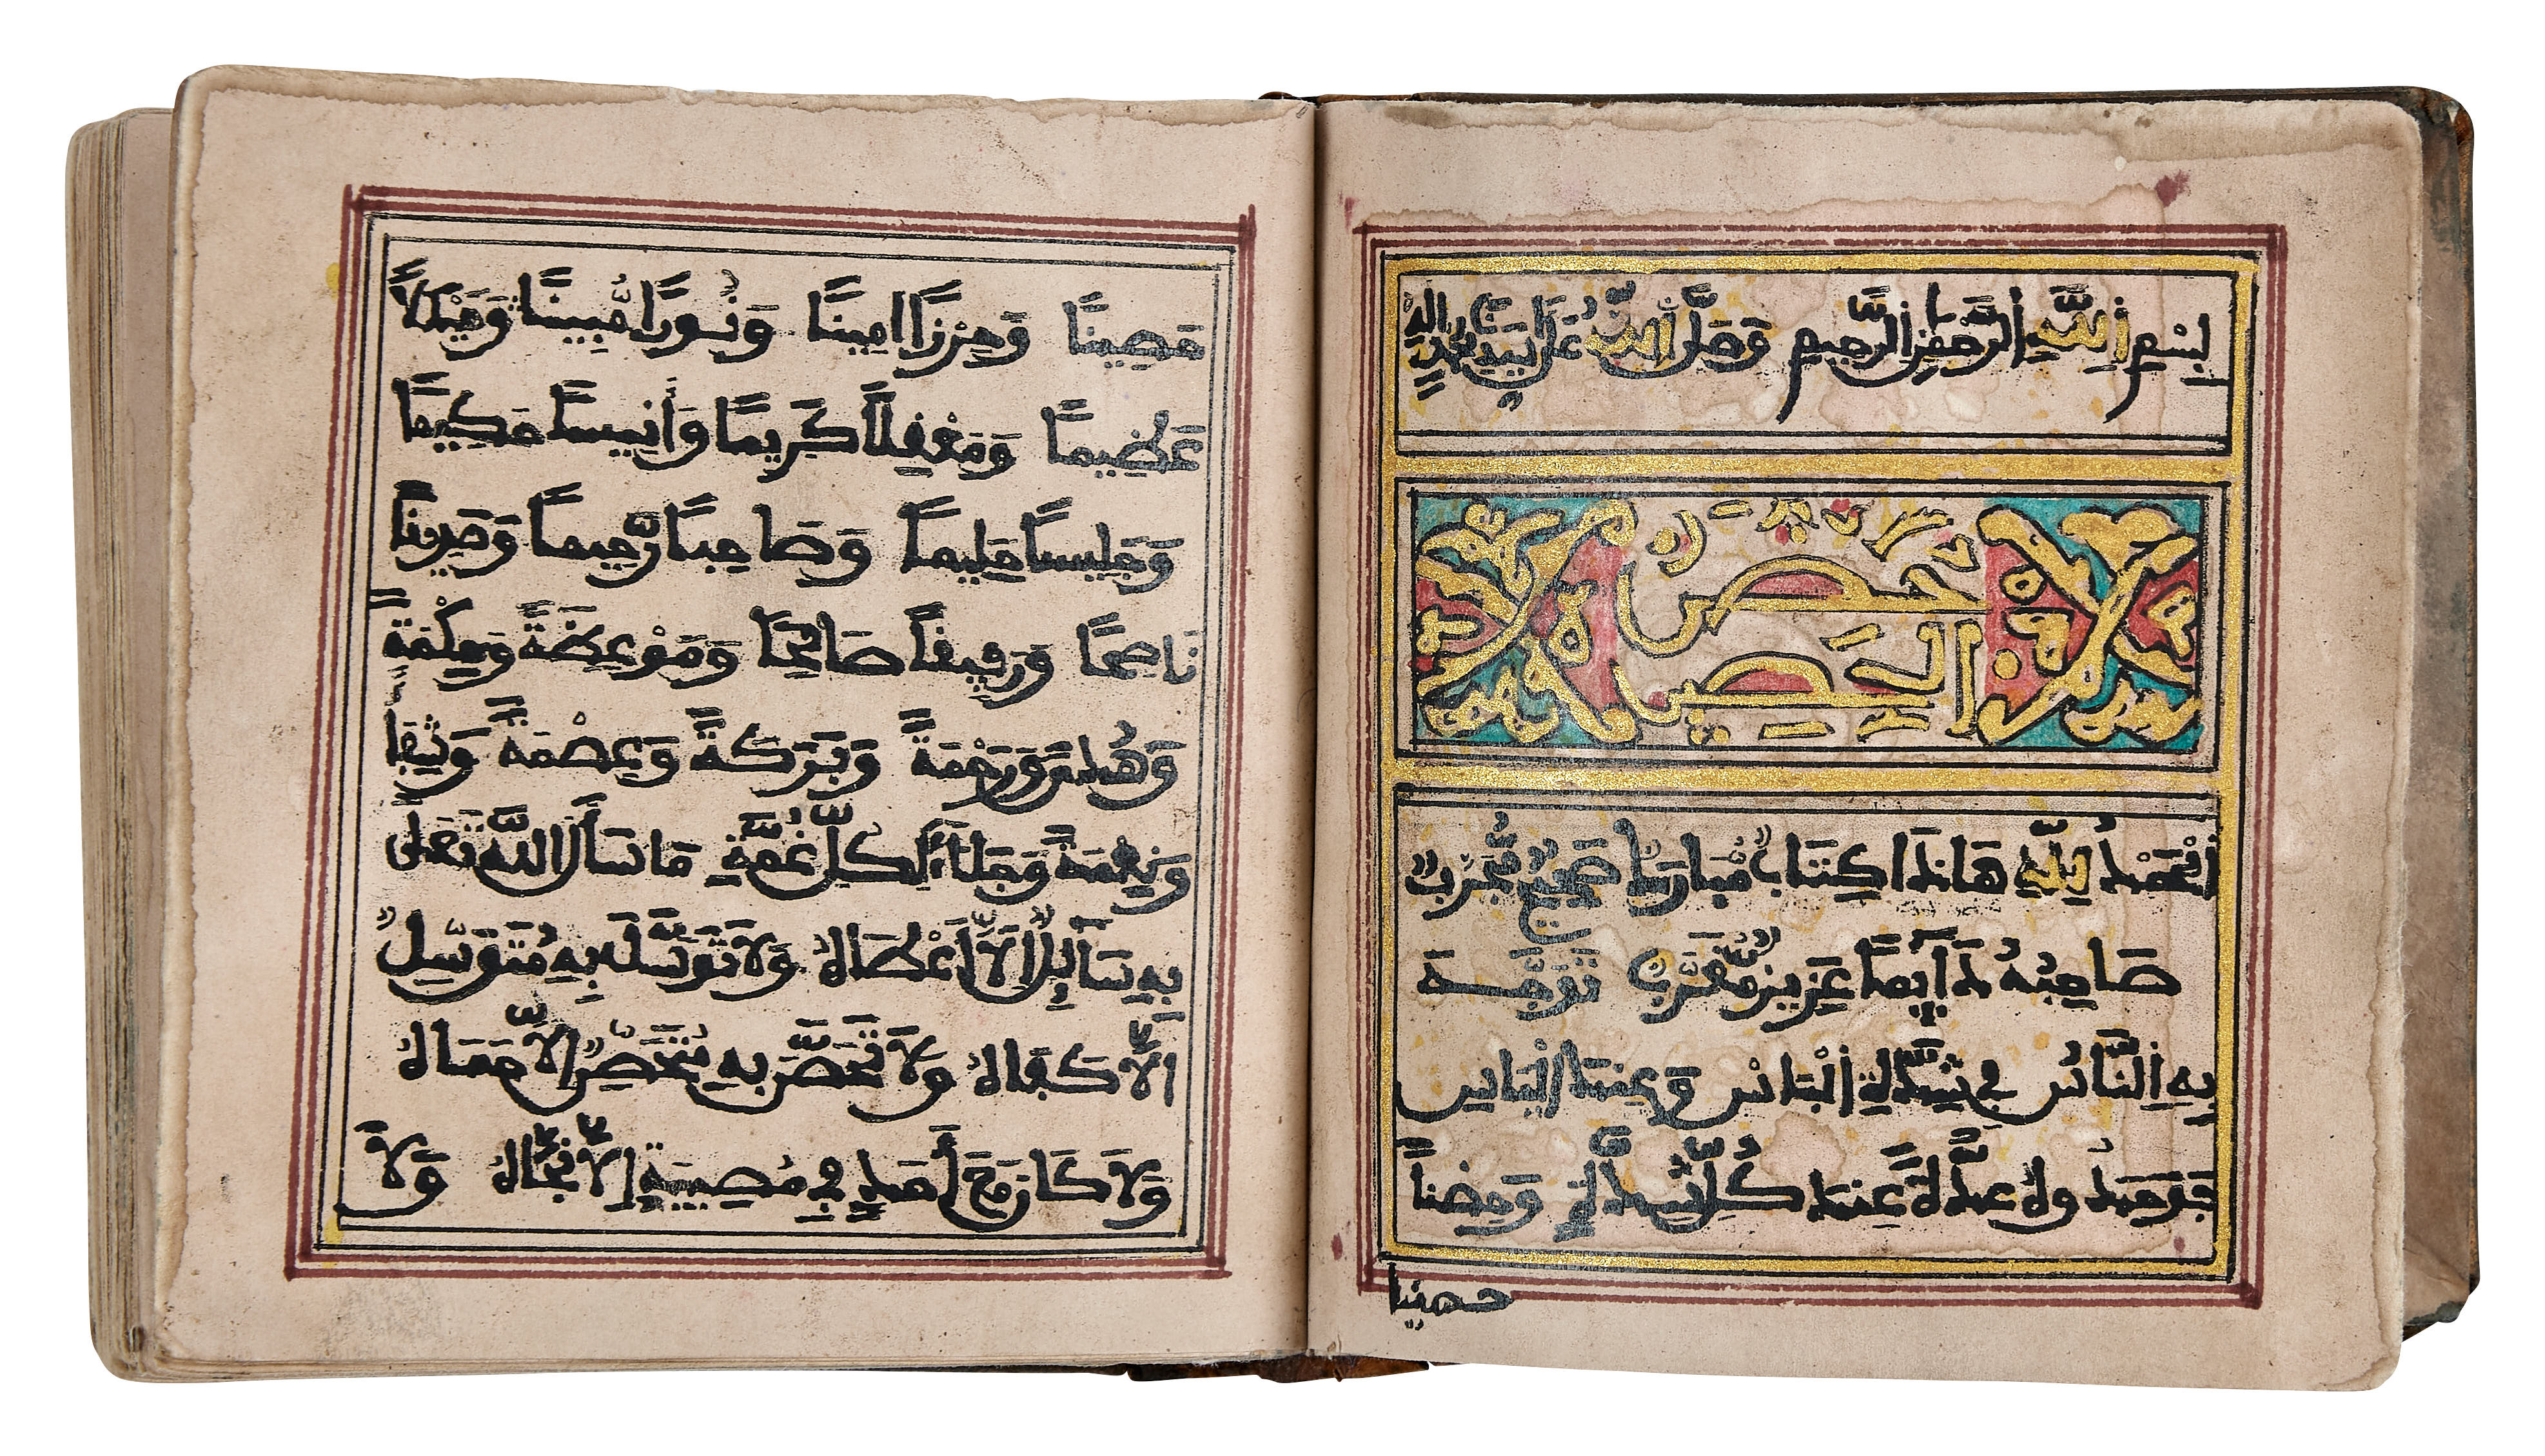 بِسْمِ اللَّهِ الرَّحْمَٰنِ الرَّحِيمِ وَصَلَّى اللَّهُ عَلَى سَيِّدِنَا مُحَمَّدٍ وَآلِهِ
حصن
الحصين
اَلْحَمْدُ لِلَّهِ هَاذَا كِتَابٌ مُبَارَكٌ صَحِيحٌ مُجَرَّبٌ
صَاحِبُهُ عَزِيزٌ
بِهِ النَّاسُ فِي شِدَّةِ الْبَأْسِ وَعِنْدَ الْبَأْسِ
عُدَّةً عِنْدَ كُلِّ شِدَّةٍ وَحِصْناً
حصينا
حَصِيناً وَحِرْزاً امِيناً وَنُوراً مُّبِيناً وَهَيْكَلاً
عَظِيماً وَمَعْقِلاً كَرِيماً وَأَنِيساً حَكِيماً
وَجَلِيساً حَلِيماً وَصَاحِباً رَّحِيماً
نَاصِحاً وَرَفِيقاً صَالِحاً وَمَوْعِظَةً وَحِكْمَةً
وَهُدىً وَرَحْمَةً وَبَرَكَةً وَعِصْمَةً وَثِيقَا
وَنِعْمَةً وَجَلَاءً لِكُلِّ غُمَّةٍ مَا سَأَلَ اللَّهَ تَعَلَى
بِهِ سَآئِلٌ اِلاَّ أَعْطَاهُ وَلاَ تَوَسَّلَ بِهِ مُتَوَسِّلٌ
اِلاَّ كَفَاهُ وَلاَ تَحَصَّنَ بِهِ مُتَحَصِّنٌ اِلاَّ حَمَاهُ
وَلاَ كَانَ مَعَ أَحَدٍ فِي مُصِيبَةٍ اِلاَّ نَجَّاهُ وَلاَ